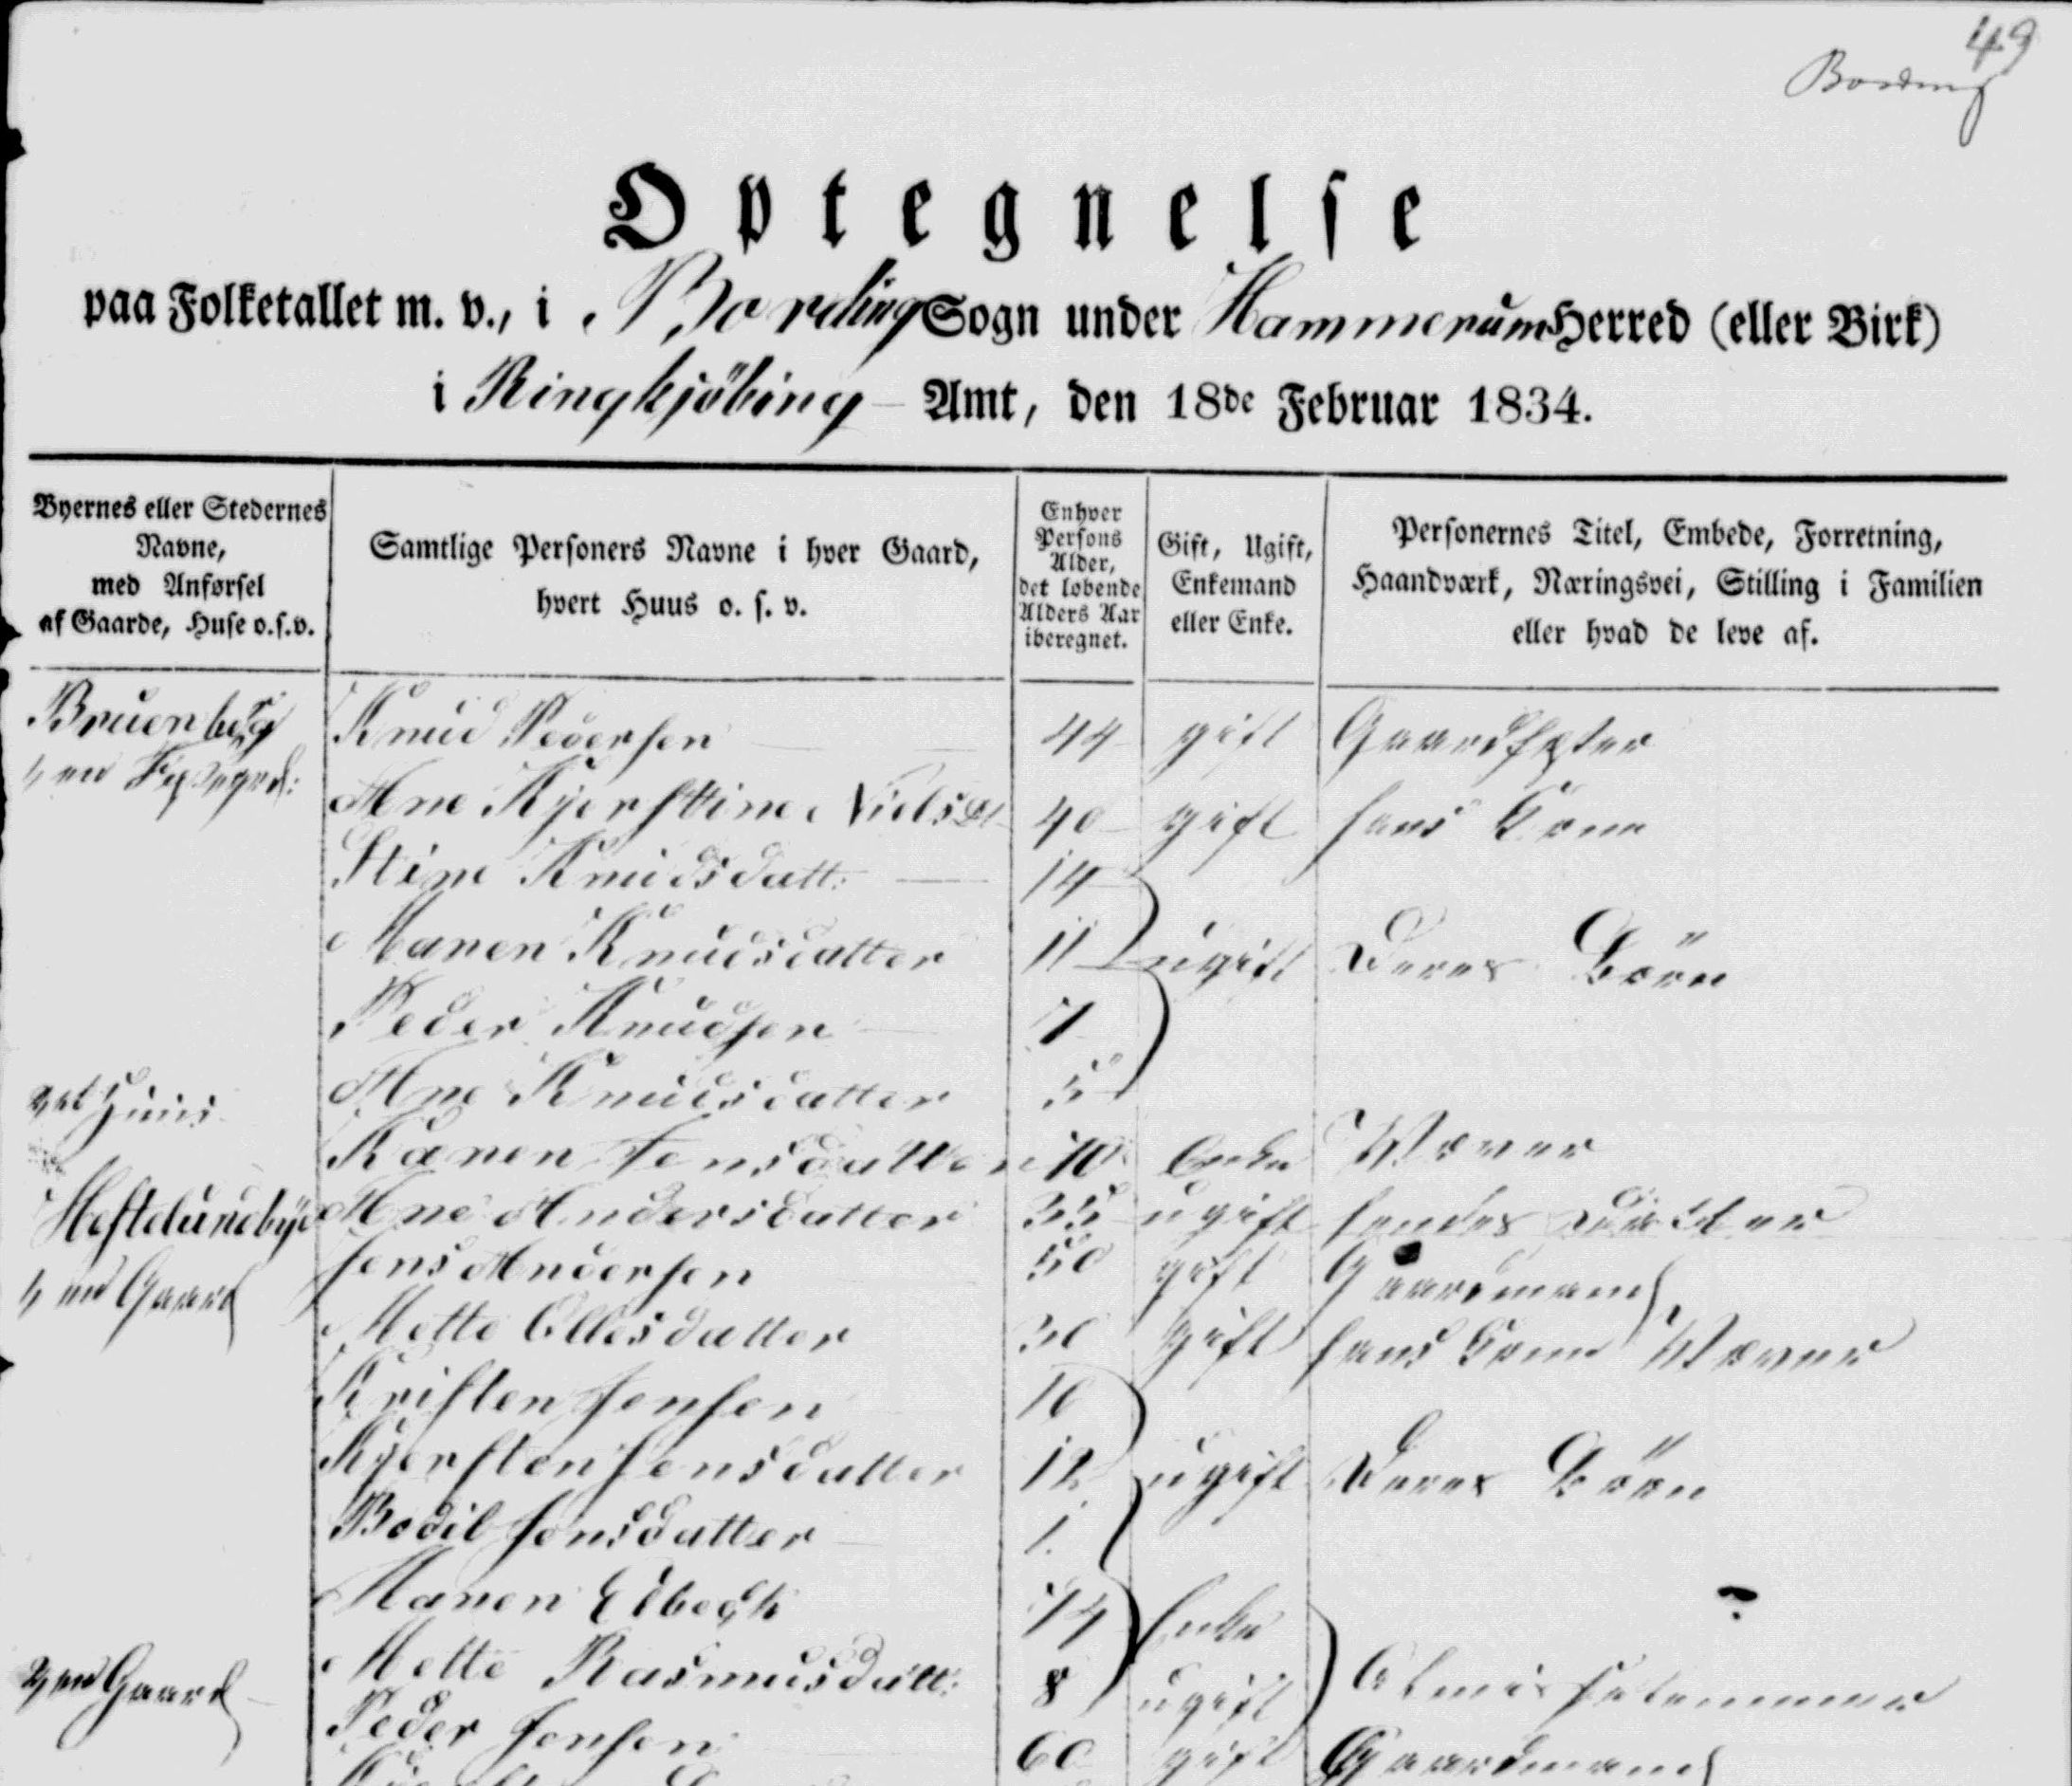 49
Bording
Optegnelse
paa Folketallet m. v., i Bording Sogn under Hammerum Herred (eller Birk)
i Ringkjöbing Amt, den 18de Februar 1834.
Byernes eller Stedernes Navne, med Anførsel af Gaarde, Huse o.s.v.
Samtlige Personers Navne i hver Gaard, hvert Huus o. s. v.
Enhver Persons Alder, det løbende Alders Aar iberegnet.
Gift, Ugift, Enkemand eller Enke.
Personernes Titel, Embede, Forretning, Haandværk, Næringsvei, Stilling i Familien eller hvad de leve af.
Knud Pedersen 44 gift Gaardfæster
Ane Kjerstine Nielsdt 40 gift hans Kone
Stine Knudsdatt: 14
Maren Knudsdatter 11 ugift Deres Börn
Peder Knudsen 7
Ane Knudsdatter 5
2det Huus
Karen Jensdatter 70 Enke Væver
Ane Andersdatter 35 ugift hendes Datter
Hestelundbye
1 en Gaard
Jens Andersen 50 gift Gaardmand
Mette Ollesdatter 30 gift hans Kone Væver
Kristen Jensen 16
Kjersten Jensdatter 12 ugift Deres Börn
Bodil Jensdatter 1.
Maren Eibeck 74 Enke
Mette Rasmusdatt: 8 ugift Almisselemmer
2 en Gaard
Peder Jensen 60 gift Gaardmand